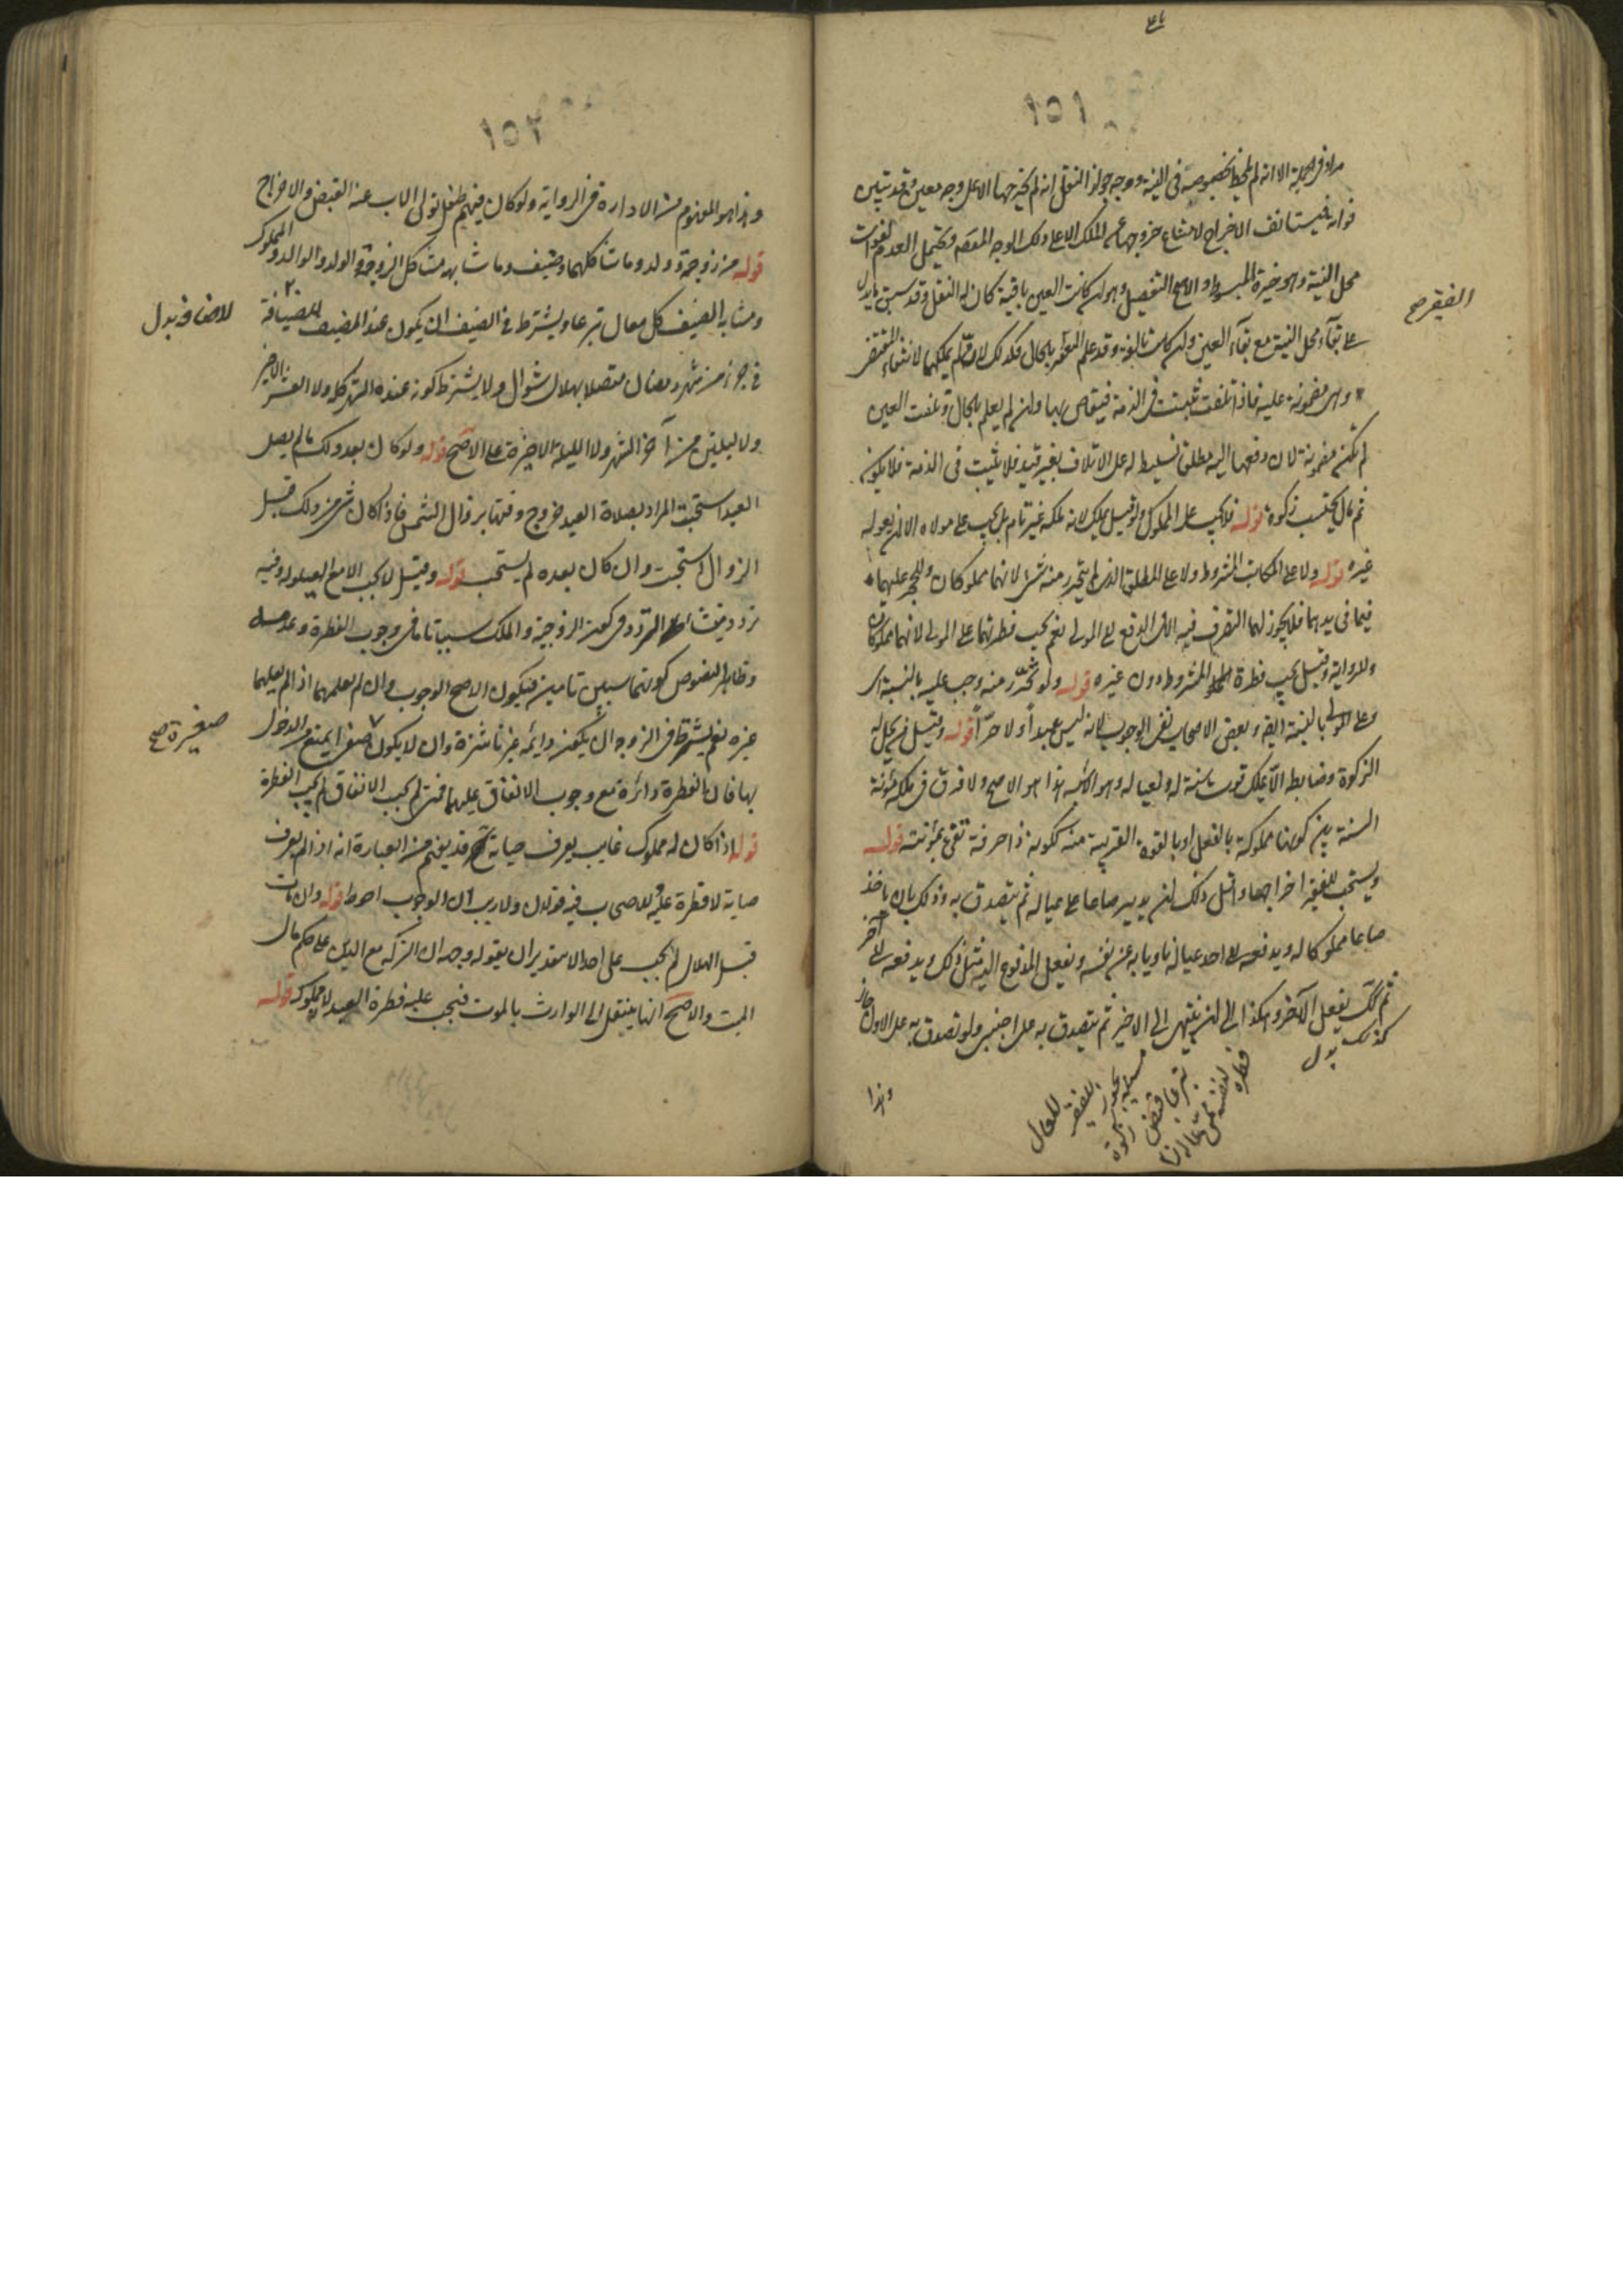 ١٥١
مراد في الجملة الا انه لم يلحظ خصوصه في النية ووجه جواز النقل انه لم يخرجها الا على وجه معين وقد تبين
فواته فيستانف الاخراج لامتناع خروجها عن الملك الا على ذلك الوجه المقصود ويحتمل العدم لفوات
محل النية وهو خيرة المبسوط والاصح التفصيل وهو ان كانت العين باقية كان له النقل وقد سبق ما يدل
على بقاء محل النية مع بقاء العين وان كانت تالفة وقد علم الفقير بالحال فكذلك لانه لم يملكها لانتفاء المقتضي
وهي مضمونة عليه فاذا تلفت ثبتت في الذمة فيتقاص بها وان لم يعلم بالحال وتلفت العين
لم تكن مضمونة لان دفعها اليه مطلقا تسليط له على الاتلاف بغير قيد فلا تثبت في الذمة فلا يكون
ثم مال يحتسب زكوة قوله فلا تجب على المملوك ولو قيل يملك لانه ملكه غير تام بل يجب على مولاه الا ان يعوله
غيره قوله ولا على المكاتب المشروط ولا على المطلق الذي لم يتحرر منه شئ لانهما مملوكان وللحجر عليهما
فيما في يديهما فلا يجوز لهما التصرف فيه الى الدفع الى المولى نعم يجب فطرتهما على المولى لانهما مملوكان
وللرواية وقيل يجب فطرة المشروط دون غيره قوله ولو تحرر منه وجب عليه بالنسبة اى
وعلى المولى بالنسبة ايضا وبعض الاصحاب نفى الوجوب لانه ليس عبدا ولا حرا قوله وقيل من تحل له
الزكوة وضابطه الا يملك قوت سنة له ولعياله وهو الاشبه هذا هو الاصح ولا فرق في ملكه مؤنة
السنة بين كونها مملوكة بالفعل او بالقوة القريبة منه ككونه ذا حرفة تفي بمؤنته قوله
ويستحب للفقير اخراجها واقل ذلك ان يدير صاعا على عياله ثم يتصدق به وذلك بان ياخذ
صاعا مملوكا له ويدفعه الى احد عياله ناويا به عن نفسه ويفعل المدفوع اليه مثل ذلك ويدفعه الى آخر
ثم كك يفعل الآخر وهكذا الى ان ينتهي الى الاخير ثم يتصدق به على اجنبي ولو تصدق به على الاول جاز
كذلك بدل
الفقير صح
وهذا
١٥٢
وهذا هو المفهوم من الادارة في الرواية ولو كان فيهم طفل تولى الاب عنه القبض والاخراج
قوله من زوجة وولد وما شاكلهما وضيف وما شابهه مشاكل الزوجة والولد الوالد والمملوك
ومشابه الضيف كل معال تبرعا ويشترط في الضيف ان يكون عند المضيف للضيافة
في جزء من شهر رمضان متصلا بهلال شوال ولا يشترط كونه عنده الشهر كله ولا العشر الاخير
ولا ليلتين من آخر الشهر ولا الليلة الاخيرة على الاصح قوله ولو كان بعد ذلك ما لم يصل
العيد استحبت المراد بصلاة العيد خروج وقتها بزوال الشمس فاذا كان شئ من ذلك قبل
الزوال استحبت وان كان بعده لم يستحب قوله وقيل لا يجب الا مع العيلولة وفيه
تردد ومنشا التردد في كون الزوجية والملك سببا تاما في وجوب الفطرة وعدمه
وظاهر النصوص كونهما سببين تامين فيكون الاصح الوجوب وان لم يعلهما اذا لم يعلهما
غيره نعم يشترط في الزوجة ان يكون دائمة غير ناشزة وان لا يكون صغرا يمنع من الدخول
بها فان الفطرة دائرة مع وجوب الانفاق عليهما فمتى لم يجب الانفاق لم تجب الفطرة
قوله اذا كان له مملوك غايب يعرف حياته قد يفهم من العبارة انه اذا لم يعرف
حياته لا فطرة عليه وللاصحاب فيه قولان ولا ريب ان الوجوب احوط قوله وان مات
قبل الهلال لم تجب على احد الا بتقدير ان يعوله وجه ان التركة مع الدين على حكم مال
الميت والاصح انها ينتقل الى الوارث بالموت فتجب عليه فطرة العبد لانه مملوكه قوله
للاضافة بدل
صغيرة صح